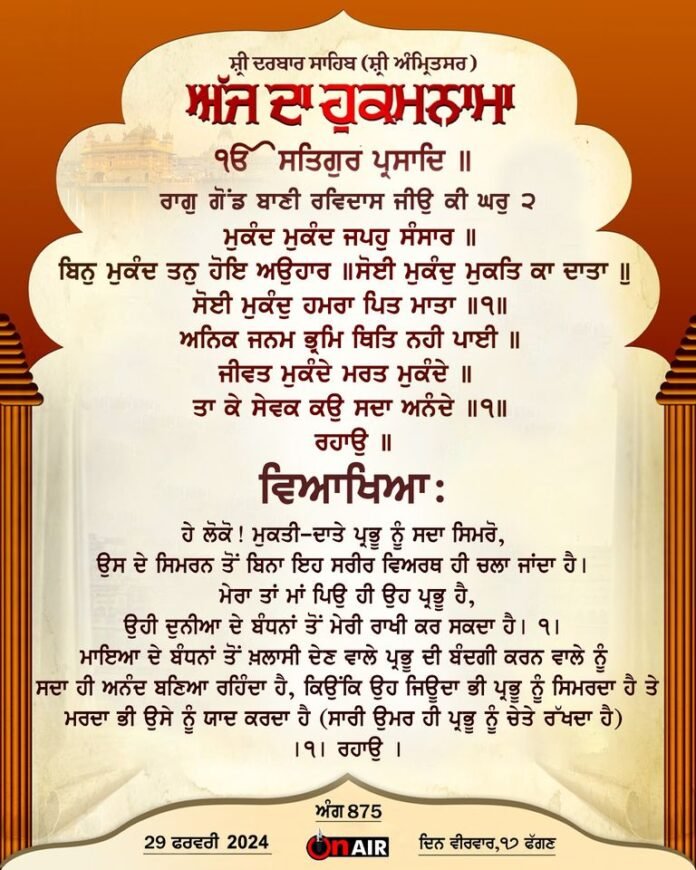 ਸ਼੍ਰੀ ਦਰਬਾਰ ਸਾਹਿਬ (ਸ਼੍ਰੀ ਅੰਮ੍ਰਿਤਸਰ)
ਅੱਜ ਦਾ ਹੁਕਮਨਾਮਾ
ੴ ਸਤਿਗੁਰ ਪ੍ਰਸਾਦਿ ॥
ਰਾਗੁ ਗੋਂਡ ਬਾਣੀ ਰਵਿਦਾਸ ਜੀਉ ਕੀ ਘਰੁ ੨
ਮੁਕੰਦ ਮੁਕੰਦ ਜਪਹੁ ਸੰਸਾਰ ॥
ਬਿਨੁ ਮੁਕੰਦ ਤਨੁ ਹੋਇ ਅਉਹਾਰ ॥ਸੋਈ ਮੁਕੰਦੁ ਮੁਕਤਿ ਕਾ ਦਾਤਾ ॥
ਸੋਈ ਮੁਕੰਦੁ ਹਮਰਾ ਪਿਤ ਮਾਤਾ ॥੧॥
ਅਨਿਕ ਜਨਮ ਭ੍ਰਮਿ ਥਿਤਿ ਨਹੀ ਪਾਈ ॥
ਜੀਵਤ ਮੁਕੰਦੇ ਮਰਤ ਮੁਕੰਦੇ ॥
ਤਾ ਕੇ ਸੇਵਕ ਕਉ ਸਦਾ ਅਨੰਦੇ ॥੧॥
ਰਹਾਉ ॥
ਵਿਆਖਿਆ:
ਹੇ ਲੋਕੋ! ਮੁਕਤੀ-ਦਾਤੇ ਪ੍ਰਭੂ ਨੂੰ ਸਦਾ ਸਿਮਰੋ,
ਉਸ ਦੇ ਸਿਮਰਨ ਤੋਂ ਬਿਨਾ ਇਹ ਸਰੀਰ ਵਿਅਰਥ ਹੀ ਚਲਾ ਜਾਂਦਾ ਹੈ।
ਮੇਰਾ ਤਾਂ ਮਾਂ ਪਿਉ ਹੀ ਉਹ ਪ੍ਰਭੂ ਹੈ,
ਉਹੀ ਦੁਨੀਆ ਦੇ ਬੰਧਨਾਂ ਤੋਂ ਮੇਰੀ ਰਾਖੀ ਕਰ ਸਕਦਾ ਹੈ। ੧।
ਮਾਇਆ ਦੇ ਬੰਧਨਾਂ ਤੋਂ ਖ਼ਲਾਸੀ ਦੇਣ ਵਾਲੇ ਪ੍ਰਭੂ ਦੀ ਬੰਦਗੀ ਕਰਨ ਵਾਲੇ ਨੂੰ
ਸਦਾ ਹੀ ਅਨੰਦ ਬਣਿਆ ਰਹਿੰਦਾ ਹੈ, ਕਿਉਂਕਿ ਉਹ ਜਿਊਦਾ ਭੀ ਪ੍ਰਭੂ ਨੂੰ ਸਿਮਰਦਾ ਹੈ ਤੇ
ਮਰਦਾ ਭੀ ਉਸੇ ਨੂੰ ਯਾਦ ਕਰਦਾ ਹੈ (ਸਾਰੀ ਉਮਰ ਹੀ ਪ੍ਰਭੂ ਨੂੰ ਚੇਤੇ ਰੱਖਦਾ ਹੈ)
।੧। ਰਹਾਉ ।
ਅੰਗ 875
29 ਫਰਵਰੀ 2024
On AIR
ਦਿਨ ਵੀਰਵਾਰ,੧੭ ਫੱਗਣ